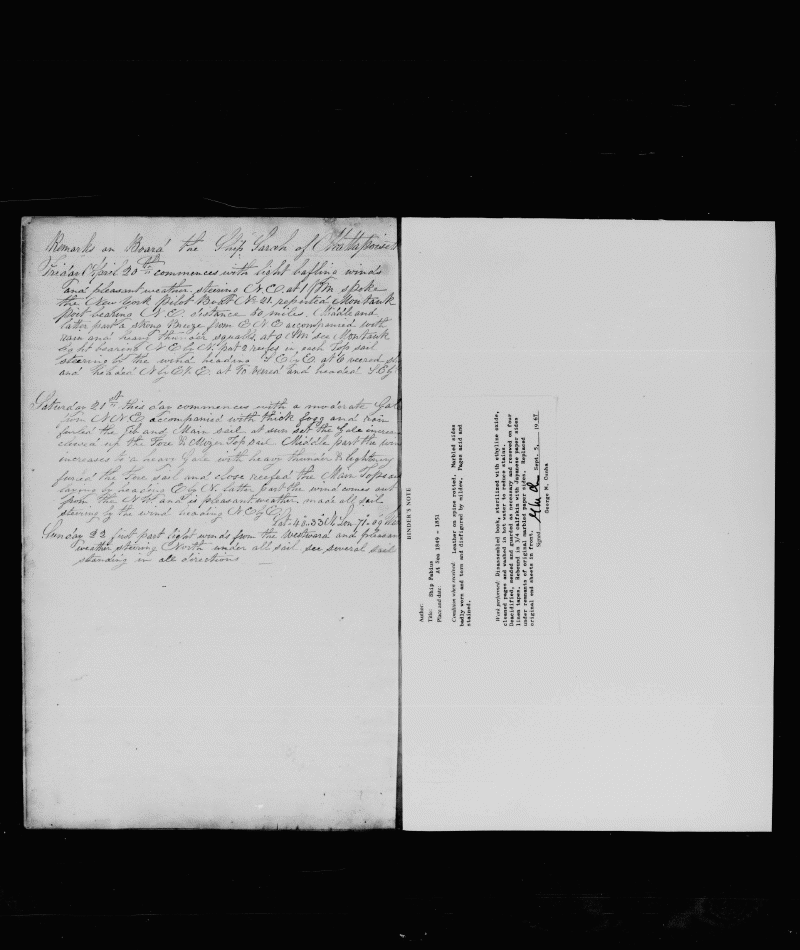 Remarks on Board the Ship Sarah of Mattapoisett
Friday April 20th commences with light bafling winds
and pleasant weather. steering N.E. at 1 PM spoke
the New York Pilot Boat No 21. reported Montauk
Point bearing N.E. distance 60 miles. Middle and
latter part a strong Breeze from E N E accompanied with
rain and heavy thunder squalls, at 9 PM see Montauk
light bearing N.E. by N. put 2 reefes in each Top sail
steering by the wind heading S.E. by E. at 6 veered
and headed N by E. at 10 veered and headed S.E by
Saturday 21st this day commences with a moderate Gale
from N.N.E. accompanied with thick fogg and rain
furled the Jib and Main sail at sun set the Gale increas
clewed up the Fore & Mizen Top sail Middle part the win
increases to a heavy Gale with heavy thunder & lightning
furled the Fore sail and close reefed the Main Topsail
laying by heading E by N. latter part the wind comes out
from the N.W. and is pleasant weather. made all sail
steering by the wind heading N.E by E
Lat. 40.33 N. Lon 71.09
Sunday 22 first part light winds from the Westward and pleasan
weather steering North under all sail see several sail
standing in all directions
BINDER'S NOTE
Author:
Title: Ship Fabius
Place and date: At Sea 1849 - 1851
Condition when received: Leather on spine rotted. Marbled sides
badly worn and torn and disfigured by mildew. Pages acid and
stained.
Work performed: Disassembled book, sterilized with ethylene oxide,
cleaned pages and washed in hot water to reduce stains.
Deacidified, mended and guarded as necessary and resewed on four
linen tapes. Rebound in 3/4 calfskin with Japanese paper sides
under remnants of original marbled paper sides. Replaced
original end sheets in front.
Signed GMC Sept. 5, 19 67
George M. Cunha